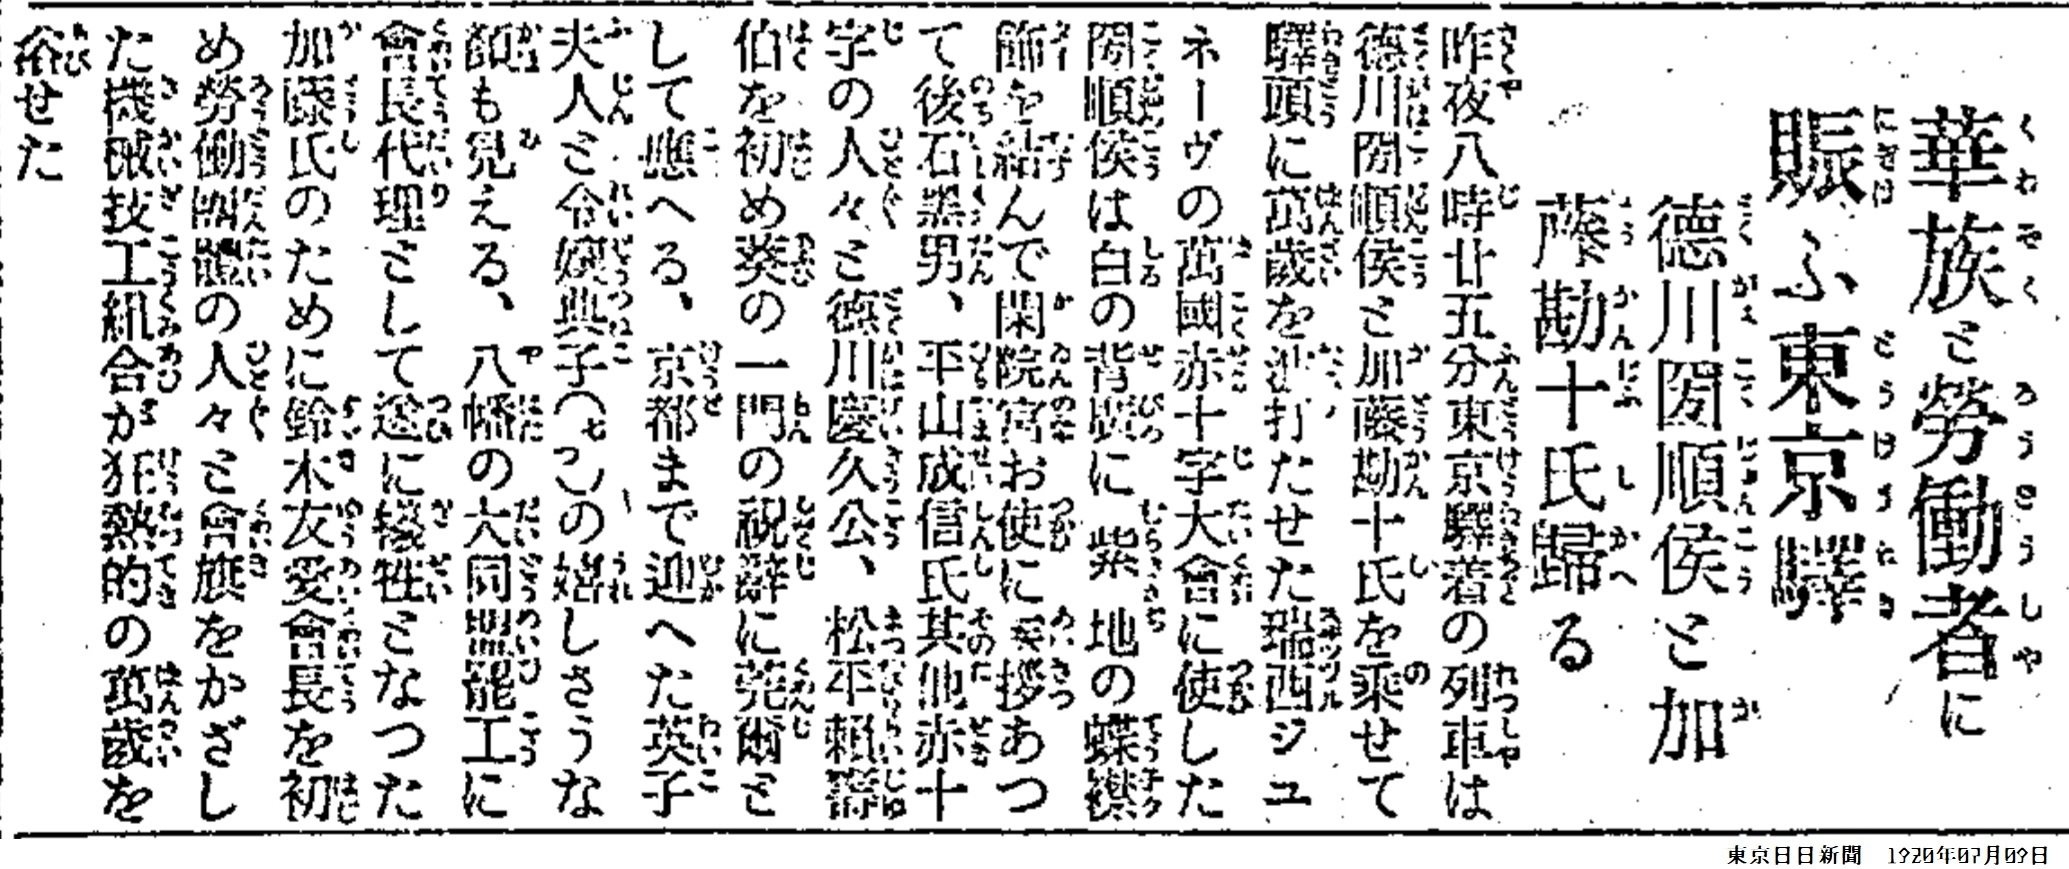 華族と勞働者に
賑ふ東京驛
德川圀順侯と加
藤勘十氏歸る
昨夜八時廿五分東京驛着の列車は
德川圀順侯と加藤勘十氏を乘せて
驛頭に萬歲を打たせた瑞西ジユ
ネーヴの萬國赤十字大會に使した
圀順侯は白の背廣に、紫地の蝶襟
飾を結んで閑院宮お使に挨拶あつ
て後石黑男、平山成信氏其他赤十
字の人々と德川慶久公、松平賴壽
伯を初め葵の一門の祝辭に莞爾と
して應へる、京都まで迎へた英子
夫人と令孃典子(七つ)の嬉しさうな
顏も見える、八幡の大同盟罷工に
會長代理として遂に犧牲となつた
加藤氏のために鈴木友愛會長を初
め勞働團體の人々と會旗をかざし
た機械技工組合が狂熱的の萬歲を
浴せた
東京日日新聞　1920年07月09日